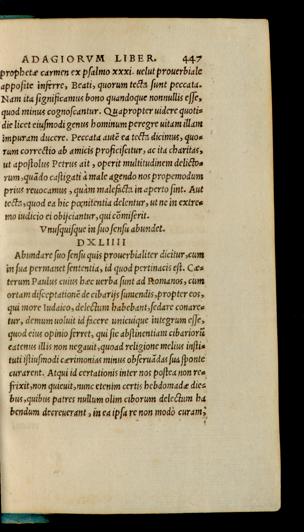 ADAGIORVM LIBER. 447
prophetæ carmen ex psalmo xxxi. uelut prouerbiale
apposite inferre, Beati, quorum tecta sunt peccata.
Nam ita significamus bono quandoque nonnullis esse,
quod minus cognoscantur. Quapropter uidere quoti-
die licet eiusmodi genus hominum peregre uitam illam
impuram ducere. Peccata autē ea tecta dicimus, quo-
rum correctio ab amicis proficiscitur, ac ita charitas,
ut apostolus Petrus ait, operit multitudinem delicto-
rum, quādo castigati à male agendo nos propemodum
prius reuocamus, quàm malefacta in aperto sint. Aut
tecta, quod ea hic pœnitentia delentur, ut ne in extre-
mo iudicio ei obijciantur, qui cōmiserit.
Vnusquisque in suo sensu abundet.
DXLIIII
Abundare suo sensu quis prouerbialiter dicitur, cum
in sua permanet sententia, id quod pertinacis est. Cæ-
terum Paulus cuius hæc uerba sunt ad Romanos, cum
ortam disceptationē de cibarijs sumendis, propter eos,
qui more Iudaico, delectum habebant, sedare conare-
tur, demum uoluit id facere unicuique integrum esse,
quod eius opinio ferret, qui sic abstinentiam cibariorū
eatenus illis non negauit, quoad religione melius insti-
tuti istiusmodi cærimonias minus obseruādas sua sponte
curarent. Atqui id certationis inter nos postea non re-
frixit, non quieuit, nunc etenim certis hebdomadæ die-
bus, quibus patres nullum olim ciborum delectum ha
bendum decreuerant, in ea ipsa re non modò curam,